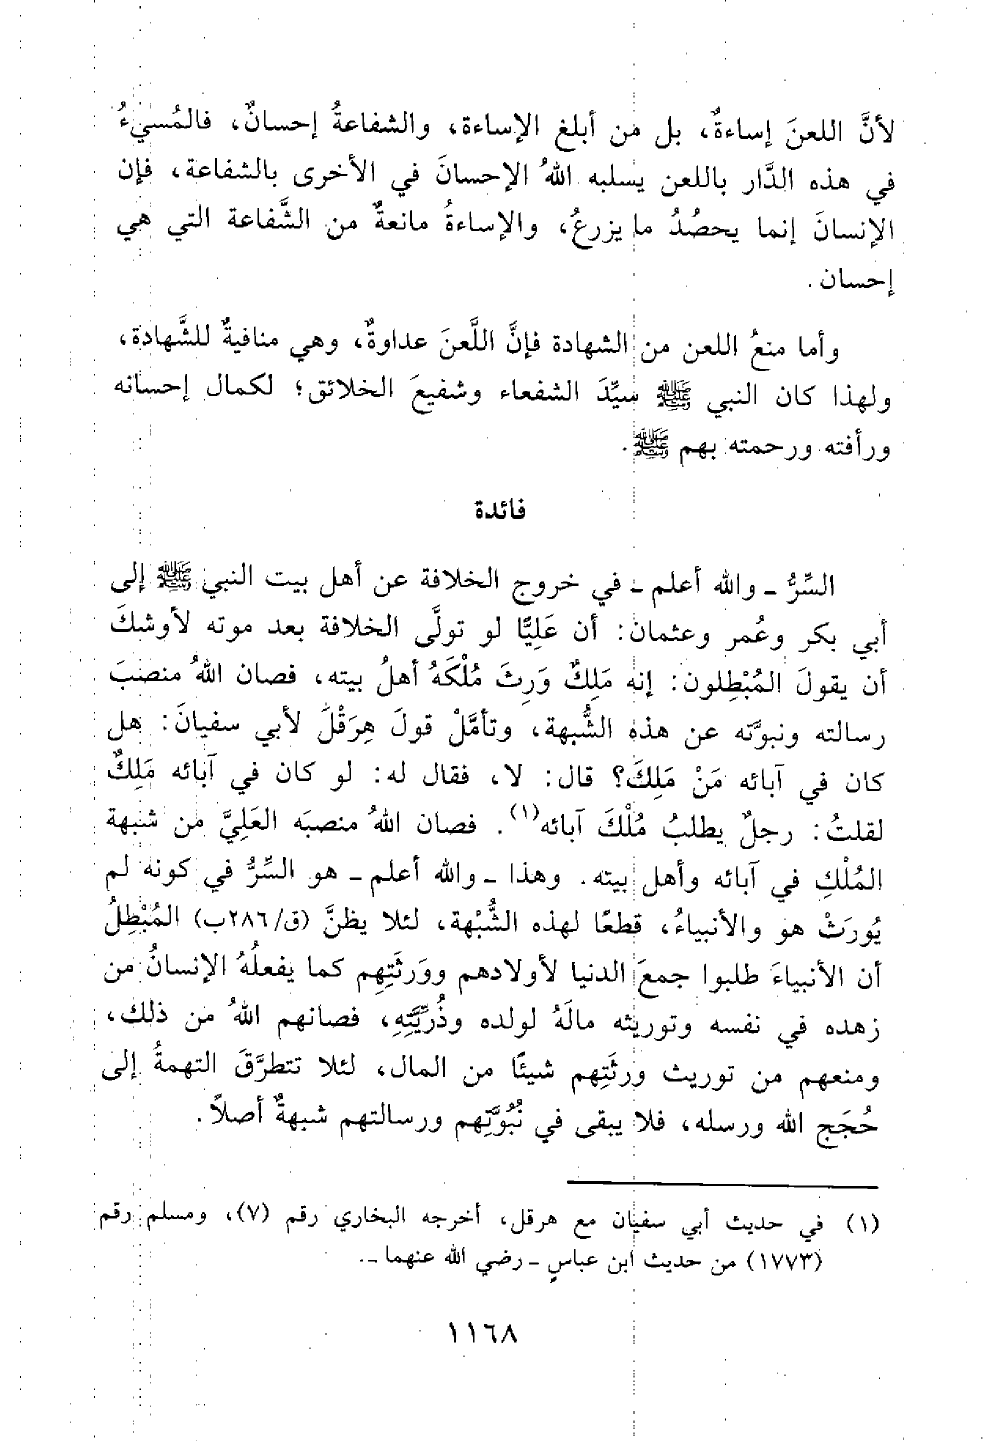 لأنَّ اللعنَ إساءةٌ، بل من أبلغ الإساءة، والشفاعةُ إحسانٌ، فالمُسيْءُ
في هذه الدَّار باللعن يسلبه اللهُ الإحسانَ في الأخرى بالشفاعة، فإن
الإنسانَ إنما يحصُدُ ما يزرعُ، والإساءةُ مانعةٌ من الشَّفاعة التي هي
إحسان.
وأما منعُ اللعن من الشهادة فإنَّ اللَّعنَ عداوةٌ، وهي منافيةٌ للشَّهادة،
ولهذا كان النبي ﷺ سيِّدَ الشفعاء وشفيعَ الخلائق؛ لكمال إحسانه
ورأفته ورحمته بهم ﷺ.
فائدة
السِّرُّ ـ والله أعلم ـ في خروج الخلافة عن أهل بيت النبي ﷺ إلى
أبي بكر وعُمر وعثمان: أن عَلِيًّا لو تولَّى الخلافة بعد موته لأوشكَ
أن يقولَ المُبْطِلون: إنه مَلِكٌ وَرِثَ مُلْكَهُ أهلُ بيته، فصان اللهُ منصبَ
رسالته ونبوَّته عن هذه الشُّبهة، وتأمَّلْ قولَ هِرَقْلَ لأبي سفيانَ: هل
كان في آبائه مَنْ مَلِكَ؟ قال: لا، فقال له: لو كان في آبائه مَلِكٌ
لقلتُ: رجلٌ يطلبُ مُلْكَ آبائه(١). فصان اللهُ منصبَه العَلِيَّ من شبهة
المُلْكِ في آبائه وأهل بيته. وهذا ـ والله أعلم ـ هو السِّرُّ في كونه لم
يُورَثْ هو والأنبياءُ، قطعًا لهذه الشُّبْهة، لئلا يظنَّ (ق/٢٨٦ب) المُبْطِلُ
أن الأنبياءَ طلبوا جمعَ الدنيا لأولادهم ووَرثَتِهِم كما يفعلُهُ الإنسانُ من
زهده في نفسه وتوريثه مالَهُ لولده وذُرِّيَّتِهِ، فصانهم اللهُ من ذلك،
ومنعهم من توريث ورثَتِهم شيئًا من المال، لئلا تتطرَّقَ التهمةُ إلى
حُجَجِ الله ورسله، فلا يبقى في نُبُوَّتِهم ورسالتهم شبهةٌ أصلاً.
(١) في حديث أبي سفيان مع هرقل، أخرجه البخاري رقم (٧)، ومسلم رقم
(١٧٧٣) من حديث ابن عباسٍ ـ رضي الله عنهما ـ.
١١٦٨